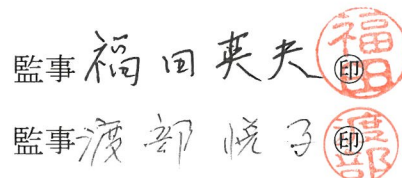 監事 福田英夫 ㊞ 福田
監事 渡部悦子 ㊞ 渡部